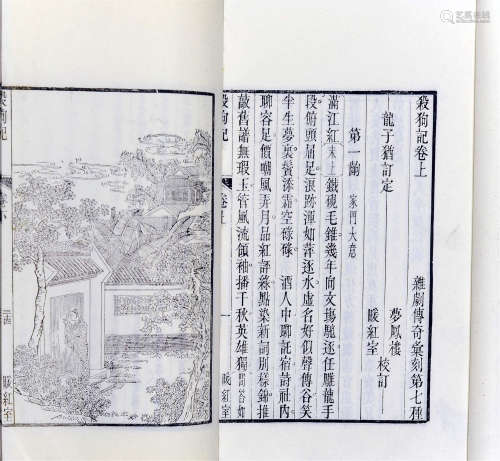 殺狗記卷上 雜劇傳奇彙刻第七種
龍子猶訂定 夢鳳樓
暖紅室 校訂
第一齣 家門大意
滿江紅 末上 鐵硯毛錐幾年向文場馳逐任雕龍手
段俯頭屈足浪跡渾如萍逐水虛名好似聲傳谷笑
半生夢裏鬢添霜空碌碌 酒人中聊託宿詩社內
聊容足價嘲風弄月品紅評綠點染新詞別樣錦推
敲舊譜無瑕玉管風流領袖播千秋英雄獨 問答如
殺狗記 卷上 一 暖紅室
殺狗記 暖紅室